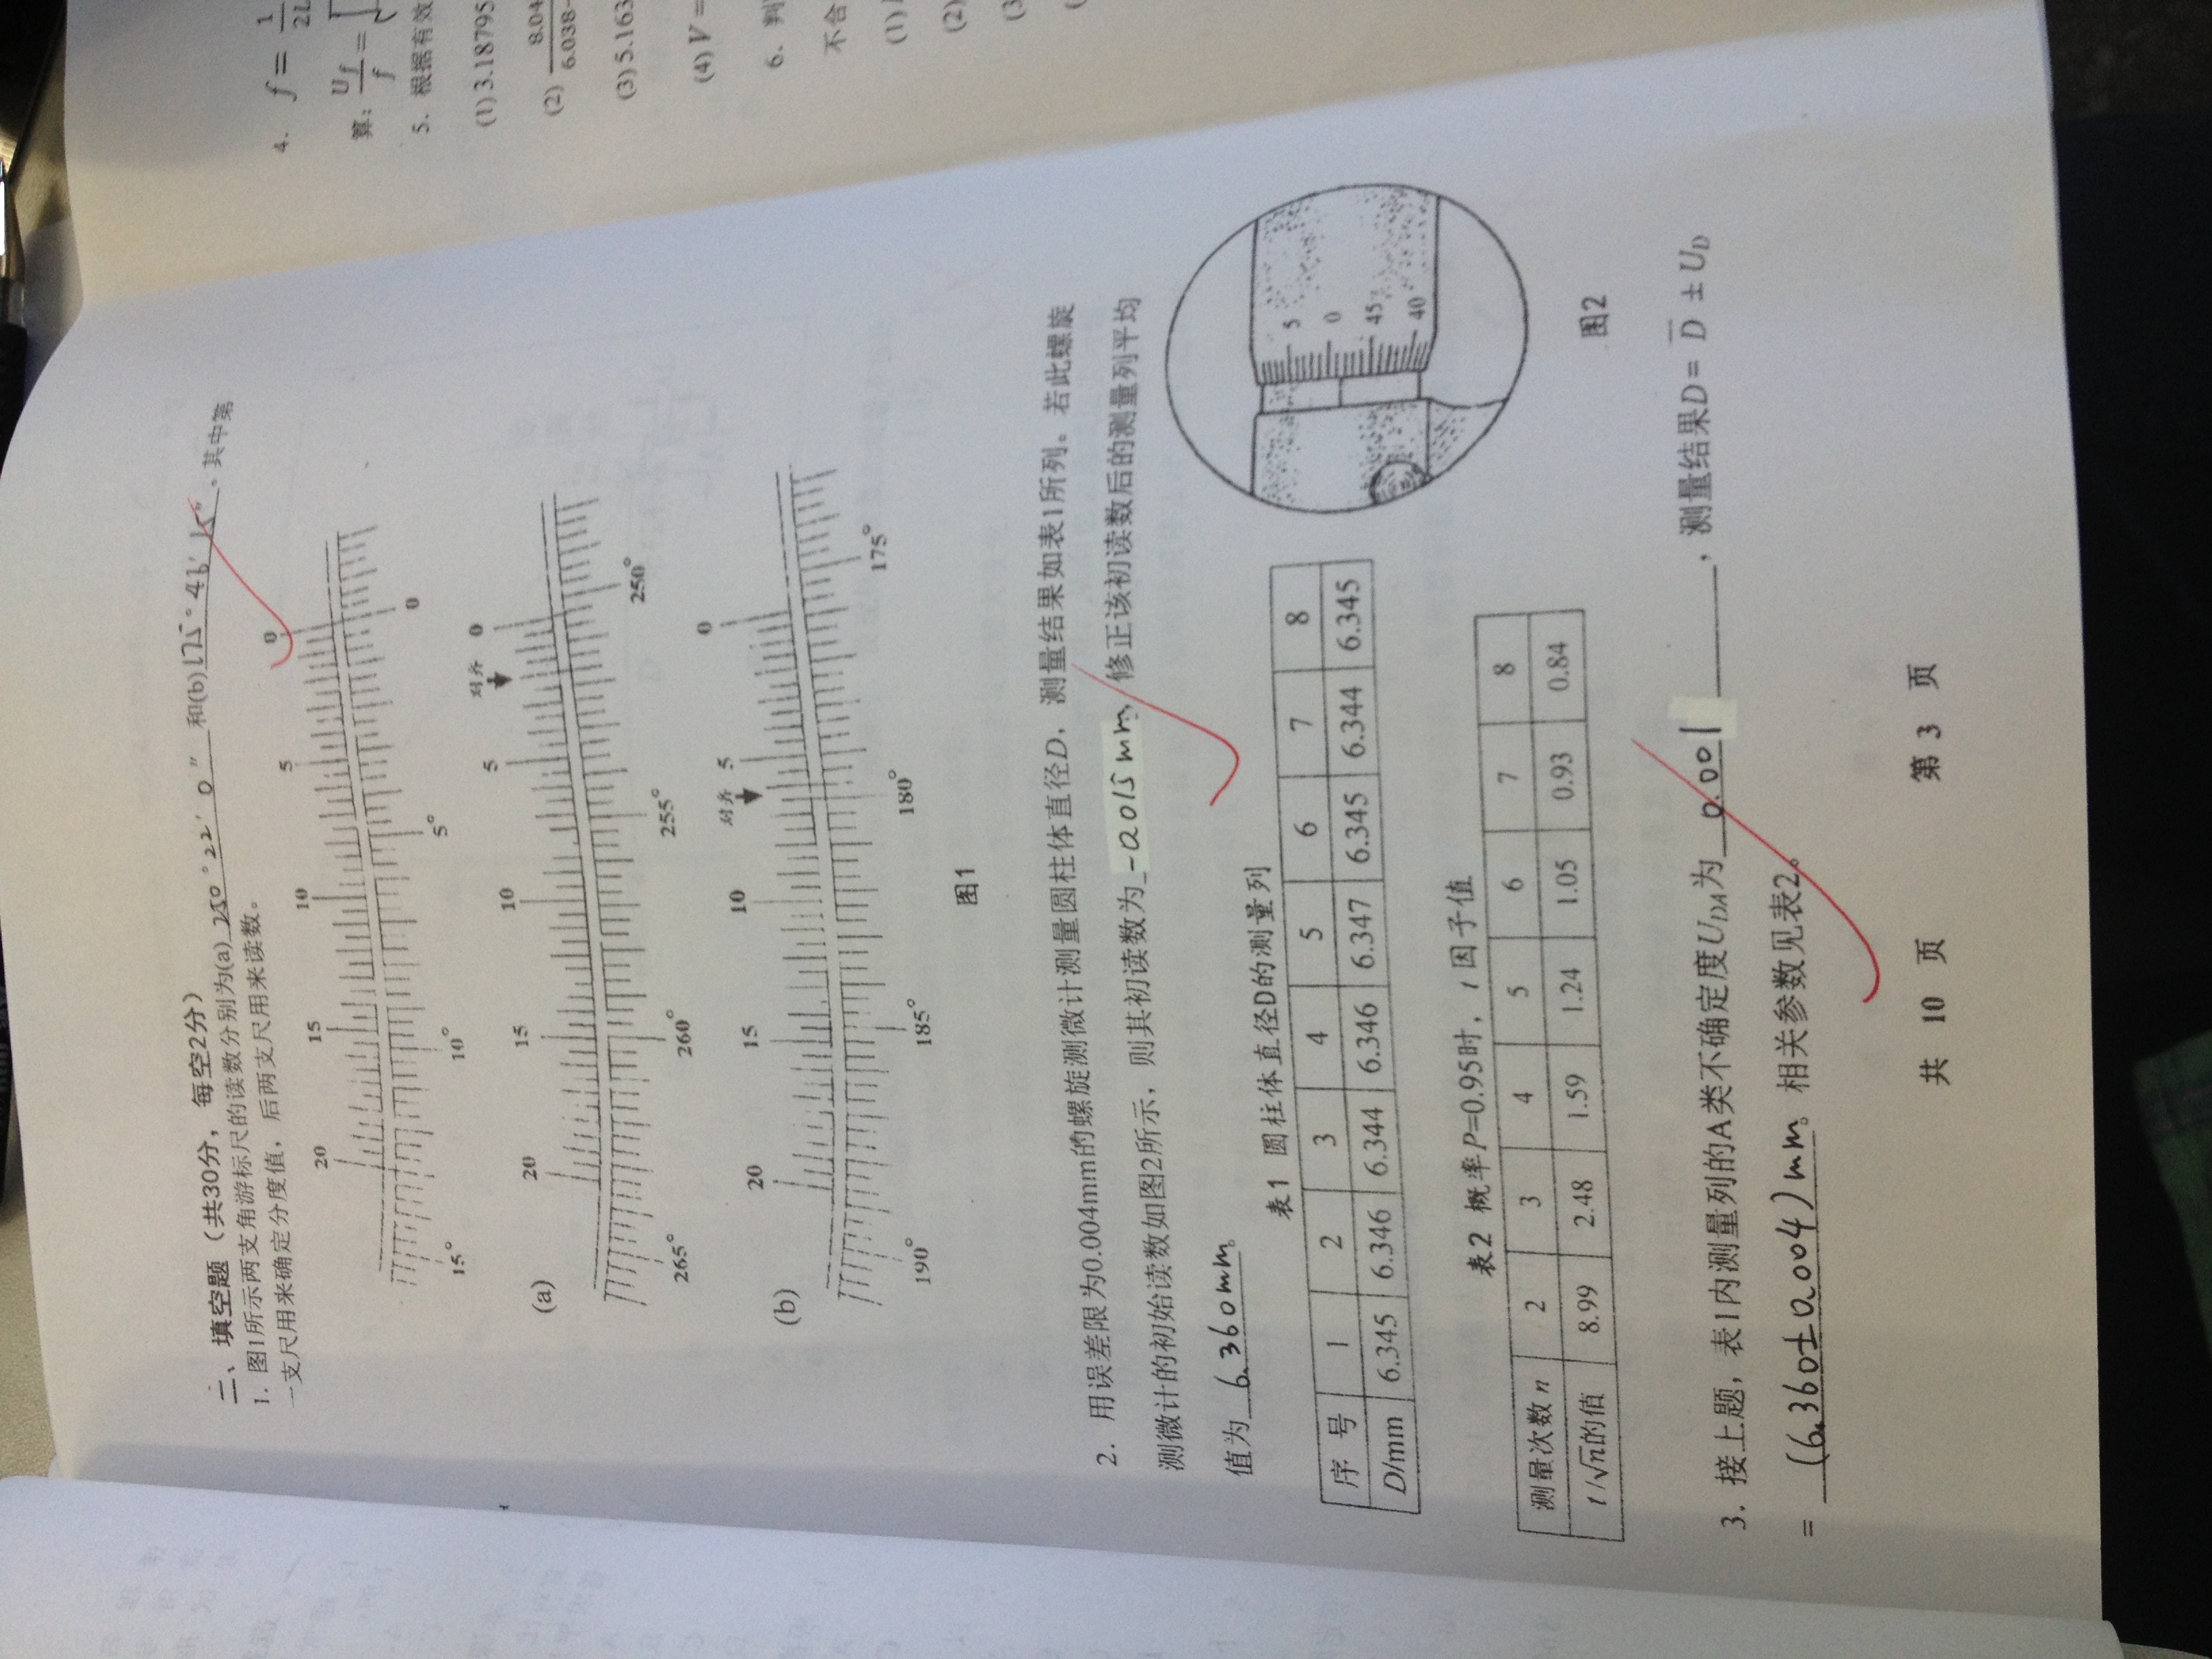 二、填空题（共30分，每空2分）
1. 图1所示两支角游标尺的读数分别为(a) 250°22′0″ 和(b) 175°46′15″ 。其中第
一支尺用来确定分度值，后两支尺用来读数。
20 15 10 5 0
15° 10° 5° 0
(a)
对齐
20 15 10 5 0
265° 260° 255° 250°
(b)
对齐
20 15 10 5 0
190° 185° 180° 175°
图1
2. 用误差限为0.004mm的螺旋测微计测量圆柱体直径D，测量结果如表1所列。若此螺旋
测微计的初始读数如图2所示，则其初读数为 -0.015mm，修正该初读数后的测量列平均
值为 6.360mm。
表1 圆柱体直径D的测量列
序 号 1 2 3 4 5 6 7 8
D/mm 6.345 6.346 6.344 6.346 6.347 6.345 6.344 6.345
5
0
45
40
图2
表2 概率P=0.95时，t 因子值
测量次数 n 2 3 4 5 6 7 8
t/√n的值 8.99 2.48 1.59 1.24 1.05 0.93 0.84
3. 接上题，表1内测量列的A类不确定度U_DA为 0.001 ，测量结果D= D̅ ± U_D
= (6.360±0.004)mm。相关参数见表2。
共 10 页 第 3 页
4. f = 1/2L
算: U_f/f =
5. 根据有效
(1) 3.18795
(2) 8.04/6.038-
(3) 5.163
(4) V =
6. 判
不合
(1)
(2)